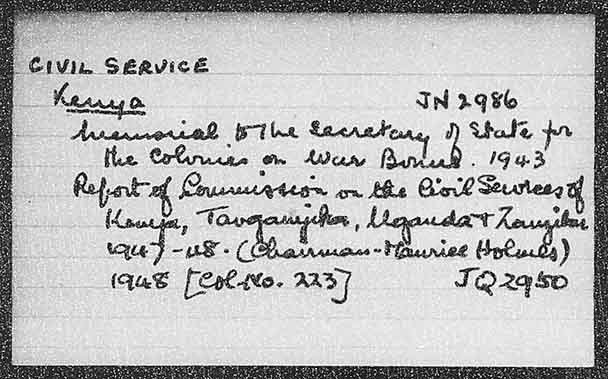 CIVIL SERVICE
Kenya JN 2986
Memorial to the Secretary of State for
the Colonies on War Bonus. 1943
Report of Commission on the Civil Services of
Kenya, Tanganyika, Uganda + Zanzibar
1947-48. (Chairman-Maurice Holmes)
1948 [Col-No. 223] JQ 2950